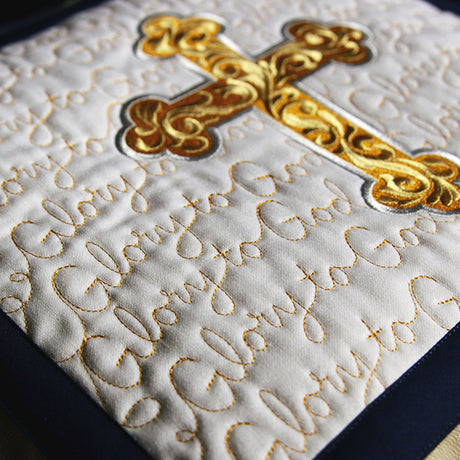 Glory to
Glory to God
Glory to God
Glory to God
Glory to God
Glory to